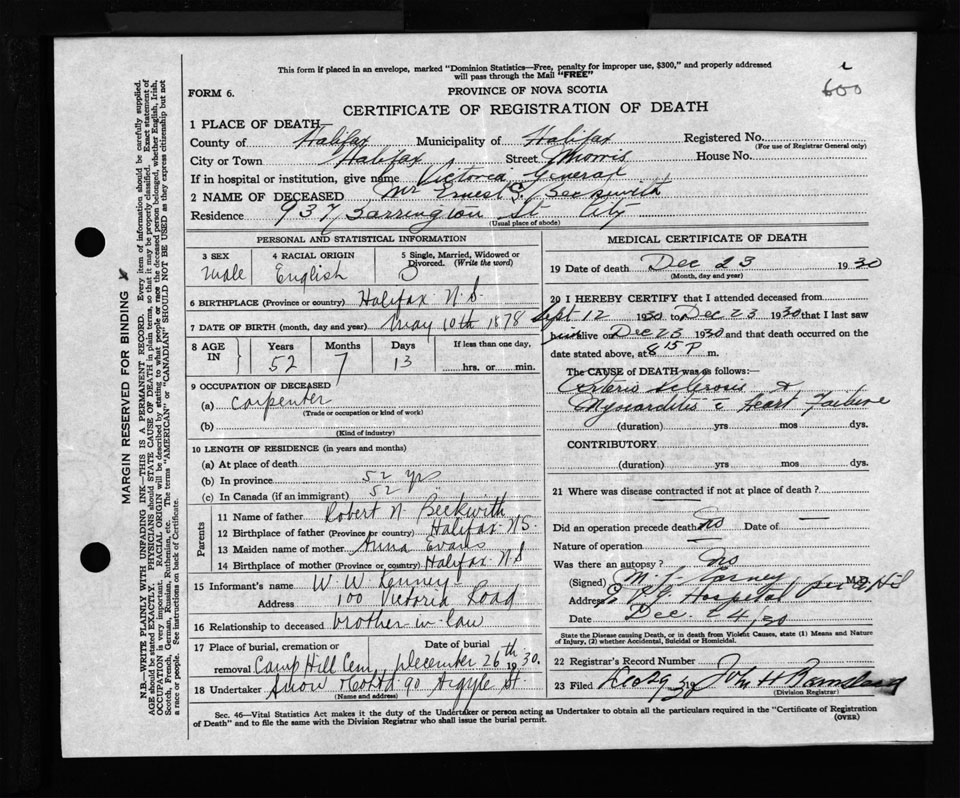 This form if placed in an envelope, marked "Dominion Statistics—Free, penalty for improper use, $300," and properly addressed
will pass through the Mail "FREE"
600
FORM 6.
PROVINCE OF NOVA SCOTIA
CERTIFICATE OF REGISTRATION OF DEATH
1 PLACE OF DEATH
County of Halifax Municipality of Halifax Registered No.
(For use of Registrar General only)
City or Town Halifax Street Morris House No.
If in hospital or institution, give name Victoria General
2 NAME OF DECEASED Mr Ernest S. Beckwith
Residence 937 Barrington St City
(Usual place of abode)
PERSONAL AND STATISTICAL INFORMATION
3 SEX 4 RACIAL ORIGIN 5 Single, Married, Widowed or
Divorced. (Write the word)
Male English S
6 BIRTHPLACE (Province or country) Halifax N.S.
7 DATE OF BIRTH (month, day and year) May 10th 1878
8 AGE IN Years Months Days If less than one day,
52 7 13 hrs. or min.
9 OCCUPATION OF DECEASED
(a) Carpenter
(Trade or occupation or kind of work)
(b)
(Kind of industry)
10 LENGTH OF RESIDENCE (in years and months)
(a) At place of death
(b) In province 52 yrs
(c) In Canada (if an immigrant) 52 "
Parents
11 Name of father Robert N. Beckwith
12 Birthplace of father (Province or country) Halifax N.S.
13 Maiden name of mother Anna Evans
14 Birthplace of mother (Province or country) Halifax N.S
15 Informant's name W. W.
Address 100 Victoria Road
16 Relationship to deceased brother-in-law
17 Place of burial, cremation or Date of burial
removal Camp Hill Cem December 26th 1930.
18 Undertaker Snow & Co Ltd 90 Argyle St.
(Name and address)
MEDICAL CERTIFICATE OF DEATH
19 Date of death Dec 23 1930
(Month, day and year)
20 I HEREBY CERTIFY that I attended deceased from
Sept 12 1930 to Dec 23 1930 that I last saw
him alive on Dec 23 1930 and that death occurred on the
date stated above, at 8 15 P m.
The CAUSE of DEATH was as follows:—
Arterio sclerosis &
Myocarditis c Heart Failure
(duration) yrs mos dys.
CONTRIBUTORY
(duration) yrs mos dys.
21 Where was disease contracted if not at place of death?
Did an operation precede death no Date of —
Nature of operation —
Was there an autopsy? no
(Signed) M. M.D.
Address V. G. Hospital
Date Dec. 24/30
State the Disease causing Death, or in death from Violent Causes, state (1) Means and Nature
of Injury, (2) whether Accidental, Suicidal or Homicidal.
22 Registrar's Record Number
23 Filed Dec 29 19 30 John H Barnstead
(Division Registrar)
Sec. 46—Vital Statistics Act makes it the duty of the Undertaker or person acting as Undertaker to obtain all the particulars required in the "Certificate of Registration
of Death" and to file the same with the Division Registrar who shall issue the burial permit.
(OVER)
MARGIN RESERVED FOR BINDING
N.B.—WRITE PLAINLY WITH UNFADING INK—THIS IS A PERMANENT RECORD. Every item of information should be carefully supplied.
AGE should be stated EXACTLY. PHYSICIANS should STATE CAUSE OF DEATH in plain terms, so that it may be properly classified. Exact statement of
OCCUPATION is very important. RACIAL ORIGIN will be described by stating to what people or race the deceased person belonged, whether English, Irish,
Scotch, French, German, Russian, Ruthenian, etc. The terms "AMERICAN" or "CANADIAN" SHOULD NOT BE USED as they express citizenship but not
a race or people. See instructions on back of Certificate.